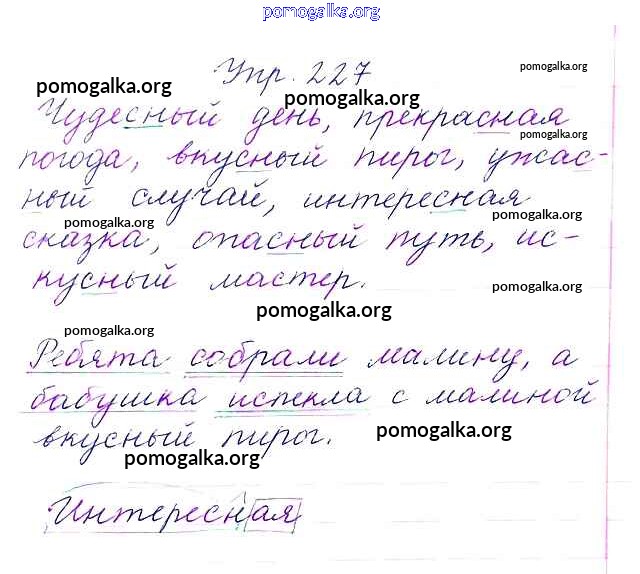 pomogalka.org
Упр. 227
pomogalka.org
pomogalka.org
pomogalka.org
Чудесный день, прекрасная
pomogalka.org
погода, вкусный пирог, ужас-
ный случай, интересная
pomogalka.org
pomogalka.org
сказка, опасный путь, ис-
кусный мастер.
pomogalka.org
pomogalka.org
pomogalka.org
Ребята собрали малину, а
бабушка испекла с малиной
вкусный пирог.
pomogalka.org
pomogalka.org
Интересная